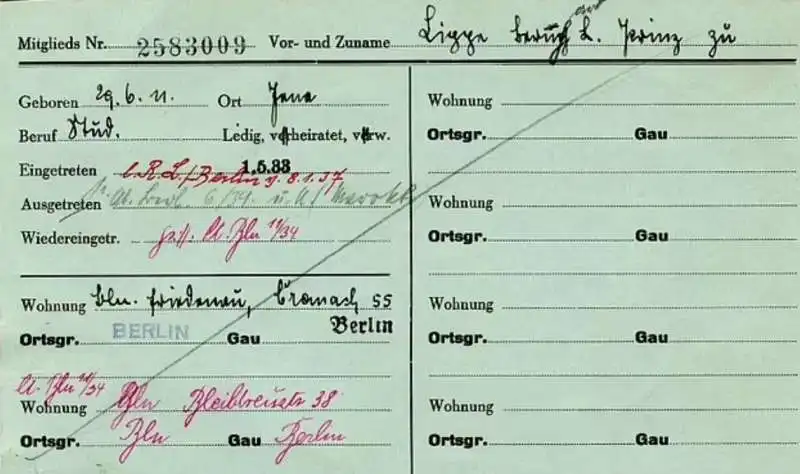 Mitglieds Nr. 2583009 Vor- und Zuname Lippe Bernhard L. Prinz zu
Geboren 29.6.11 Ort Jena
Beruf Stud. Ledig, verheiratet, verw.
Eingetreten 1.5.33
l.R.L./Berlin v. 8.1.37
Ausgetreten 6/34
Wiedereingetr. 11/34
Wohnung Bln. Friedenau, 55
Ortsgr. BERLIN Gau Berlin
10/34
Wohnung Bln Bleibtreustr 38
Ortsgr. Bln Gau Berlin
Wohnung
Ortsgr. Gau
Wohnung
Ortsgr. Gau
Wohnung
Ortsgr. Gau
Wohnung
Ortsgr. Gau